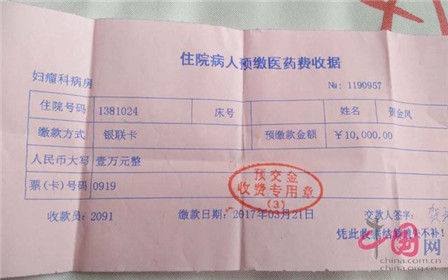 住院病人预缴医药费收据
妇瘤科病房
№: 1190957
住院号码 1381024 床号 姓名 金凤
缴款方式 银联卡 预缴款金额 ¥10,000.00
人民币大写 壹万元整
票(卡)号码 0919
预交金
收费专用章
(3)
收款员: 2091 缴款日期: 2017年03月21日 交款人签字:
凭此收据结帐 不补!
中国网
china.com.cn
www.china.org.cn